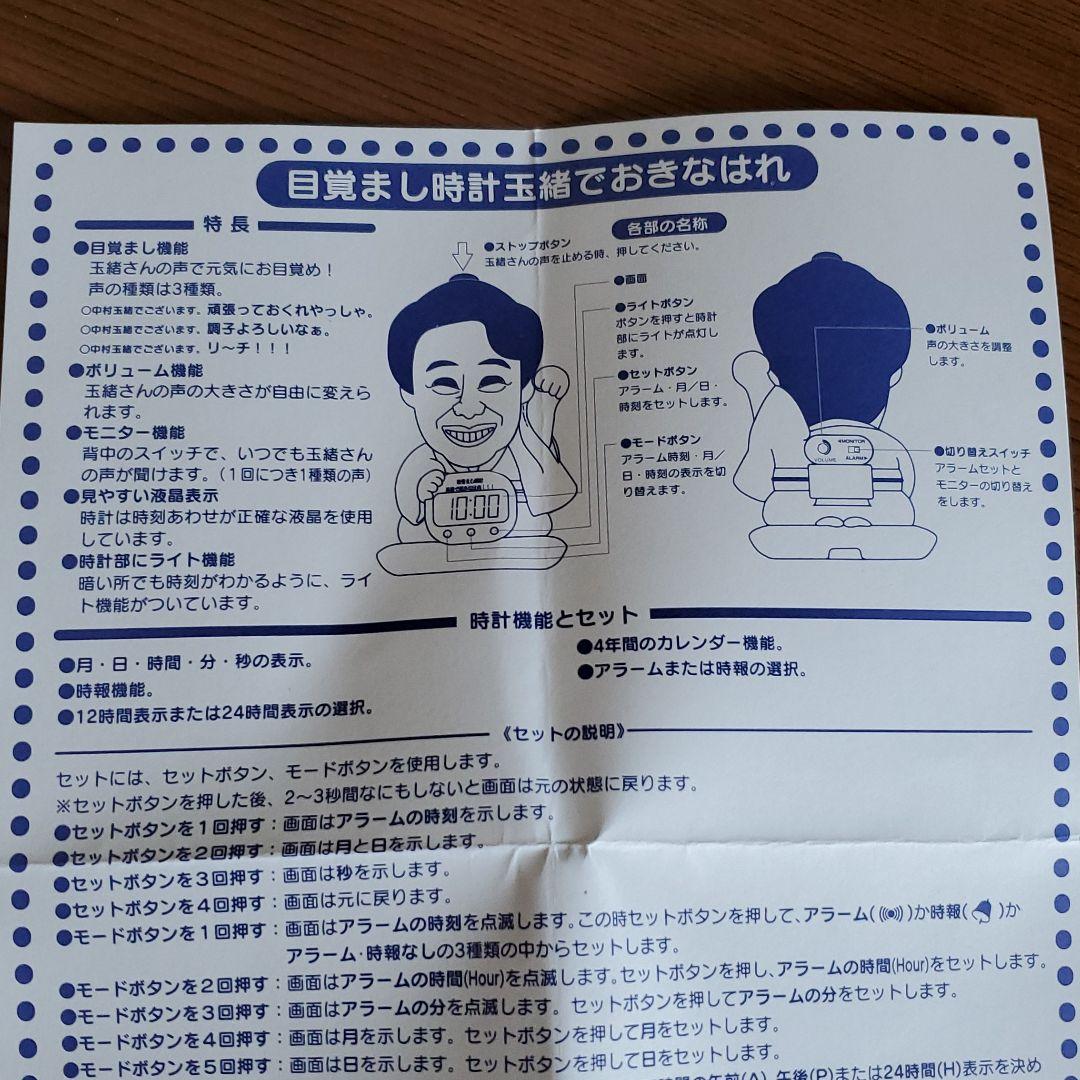 目覚まし時計玉緒でおきなはれ
特長
●目覚まし機能
玉緒さんの声で元気にお目覚め！
声の種類は3種類。
○中村玉緒でございます。頑張っておくれやっしゃ。
○中村玉緒でございます。調子よろしいなぁ。
○中村玉緒でございます。リ〜チ！！！
●ボリューム機能
玉緒さんの声の大きさが自由に変えら
れます。
●モニター機能
背中のスイッチで、いつでも玉緒さん
の声が聞けます。（1回につき1種類の声）
●見やすい液晶表示
時計は時刻あわせが正確な液晶を使用
しています。
●時計部にライト機能
暗い所でも時刻がわかるように、ライ
ト機能がついています。
各部の名称
●ストップボタン
玉緒さんの声を止める時、押してください。
●画面
●ライトボタン
ボタンを押すと時計
部にライトが点灯し
ます。
●セットボタン
アラーム・月／日・
時刻をセットします。
●モードボタン
アラーム時刻・月／
日・時刻の表示を切
り替えます。
10:00
●ボリューム
声の大きさを調整
します。
●切り替えスイッチ
アラームセットと
モニターの切り替え
をします。
◀MONITOR
VOLUME
ALARM▶
時計機能とセット
●月・日・時間・分・秒の表示。
●時報機能。
●12時間表示または24時間表示の選択。
●4年間のカレンダー機能。
●アラームまたは時報の選択。
《セットの説明》
セットには、セットボタン、モードボタンを使用します。
※セットボタンを押した後、2〜3秒間なにもしないと画面は元の状態に戻ります。
●セットボタンを1回押す：画面はアラームの時刻を示します。
●セットボタンを2回押す：画面は月と日を示します。
●セットボタンを3回押す：画面は秒を示します。
●セットボタンを4回押す：画面は元に戻ります。
●モードボタンを1回押す：画面はアラームの時刻を点滅します。この時セットボタンを押して、アラーム( )か時報( )か
アラーム・時報なしの3種類の中からセットします。
●モードボタンを2回押す：画面はアラームの時間(Hour)を点滅します。セットボタンを押し、アラームの時間(Hour)をセットします。
●モードボタンを3回押す：画面はアラームの分を点滅します。セットボタンを押してアラームの分をセットします。
●モードボタンを4回押す：画面は月を示します。セットボタンを押して月をセットします。
●モードボタンを5回押す：画面は日を示します。セットボタンを押して日をセットします。
時間の午前(A)、午後(P)または24時間(H)表示を決め